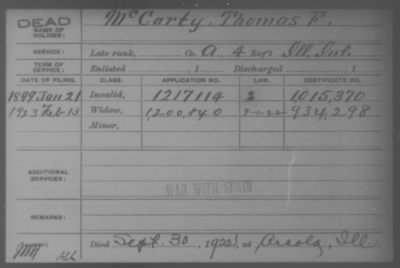 DEAD
NAME OF SOLDIER: McCarty, Thomas F.
SERVICE: Late rank, Co. A, 4 Reg't Ill. Inf.
TERM OF SERVICE: Enlisted , 1 Discharged , 1
DATE OF FILING. CLASS. APPLICATION NO. LAW. CERTIFICATE NO.
1899 Jan 21 Invalid, 1217114 S 1,015,370
1923 Feb 13 Widow, 1200,840 9-1-22 934,298
Minor,
ADDITIONAL SERVICES:
WAR WITH SPAIN
REMARKS:
Died Sept. 30, 1922, at Arcola, Ill